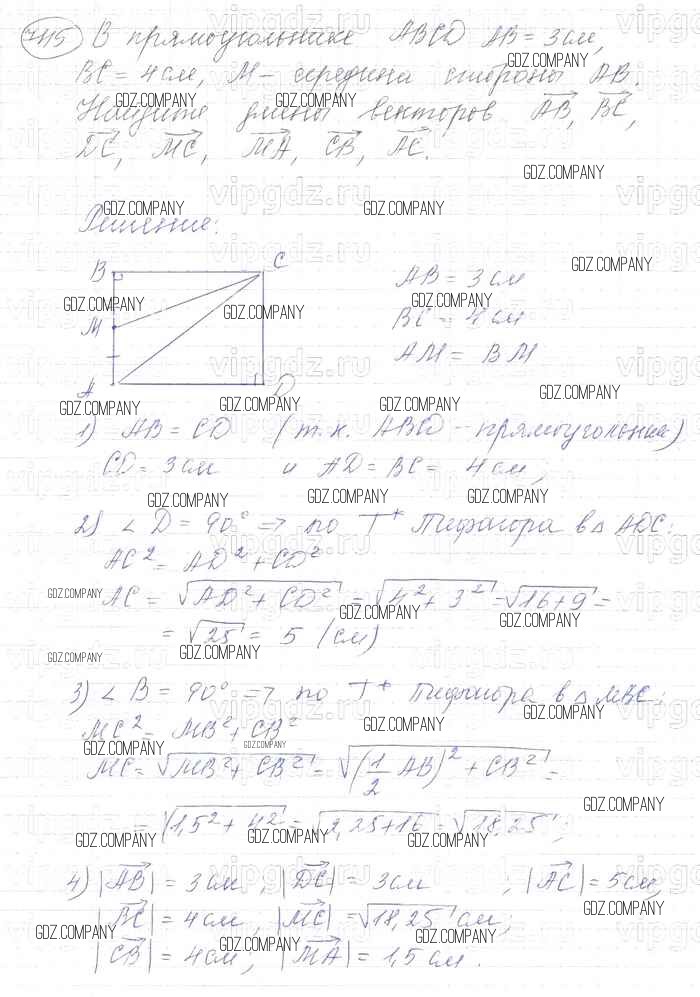 745 В прямоугольнике ABCD AB = 3 см,
BC = 4 см, M – середина стороны AB.
Найдите длины векторов AB, BC,
DC, MC, MA, CB, AC.
Решение:
B C
M
A D
AB = 3 см
BC = 4 см
AM = BM
1) AB = CD (т.к. ABCD – прямоугольник)
CD = 3 см и AD = BC = 4 см;
2) ∠D = 90° => по Т+ Пифагора в △ ADC:
AC² = AD² + CD²
AC = √(AD² + CD²) = √(4² + 3²) = √(16 + 9) =
= √25 = 5 (см)
3) ∠B = 90° => по Т+ Пифагора в △ MBC:
MC² = MB² + CB²
MC = √(MB² + CB²) = √((1/2 AB)² + CB²) =
= √(1,5² + 4²) = √(2,25 + 16) = √18,25;
4) |AB| = 3 см; |DC| = 3 см; |AC| = 5 см,
|BC| = 4 см, |MC| = √18,25 см;
|CB| = 4 см; |MA| = 1,5 см.
GDZ.COMPANY
vipgdz.ru